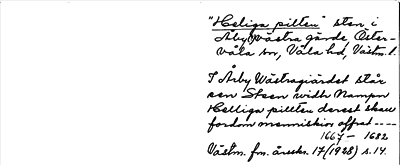 "Heliga pilten" sten i
Åby Västra gärde Öster-
våla sn, Våla hd, Västm. l.
I Årby Wästragiärdet står
een Steen widh Nampn
Helliga pillten derest skau
fordom menniskior offrat ----
1667 - 1682
Västm. fm. årsskr. 17 (1928) s. 14.